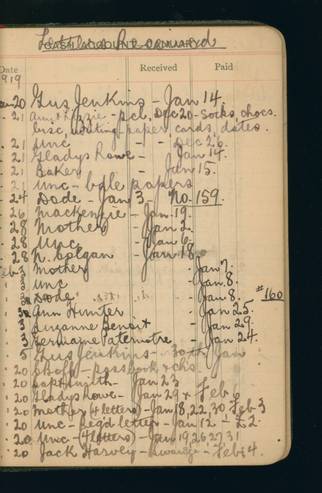 Letters Received
CASH ACCOUNT JANUARY
Date Received Paid
1919
Jan 20 Gus Jenkins - Jan 14.
21 Aunt Lizzie - pcl, Dec 20 - socks, chocs.
bisc, writing paper, cards, dates.
21 Unc - Dec 26
21 Gladys Rowe - Jan 14.
21 Baker - Jan 15.
21 Unc - bdle papers
24 Dode - Jan 3 No. 159
26 Mackenzie - Jan 19.
28 Mother - Jan 2
28 Unc - Jan 6
28 N. Colgan - Jan 18
Feb 3 Mother - Jan 7.
3 Unc - Jan 8.
3 Dode - Jan 8. #160
3 Ann Hunter - Jan 25.
3 Suzanne Benoit - Jan 29.
3 Germaine Paternotre - Jan 24.
5 Gus Jenkins - 30th Jan
20 - passbook & chs.
20 - Jan 23
20 Gladys Rowe - Jan 29 & Feb 6
20 Mother (4 letters) - Jan 18, 22, 30, Feb 3
20 Unc - Reg'd letter - Jan 12 - £2
20 Unc - (4 letters) - Jan 19, 26, 27, 31
20 Jack Harvey - - Feb 4.